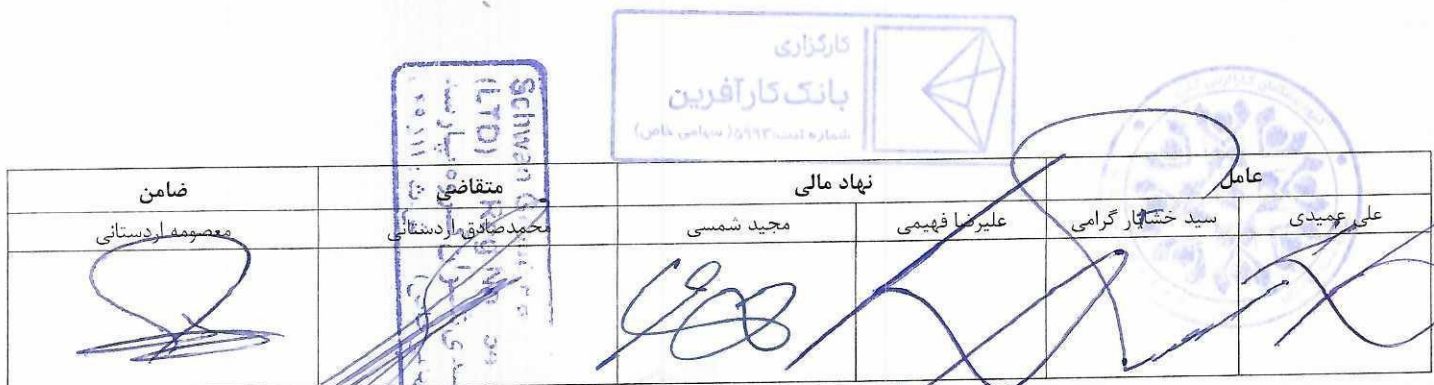 کارگزاری
بانک کارآفرین
شماره ثبت: ۵۹۹۳ (سهامی خاص)
Schwan
(LTD) Reg No
عامل نهاد مالی متقاضی ضامن
علی عمیدی سید خشایار گرامی علیرضا فهیمی مجید شمسی محمدصادق اردستانی معصومه اردستانی